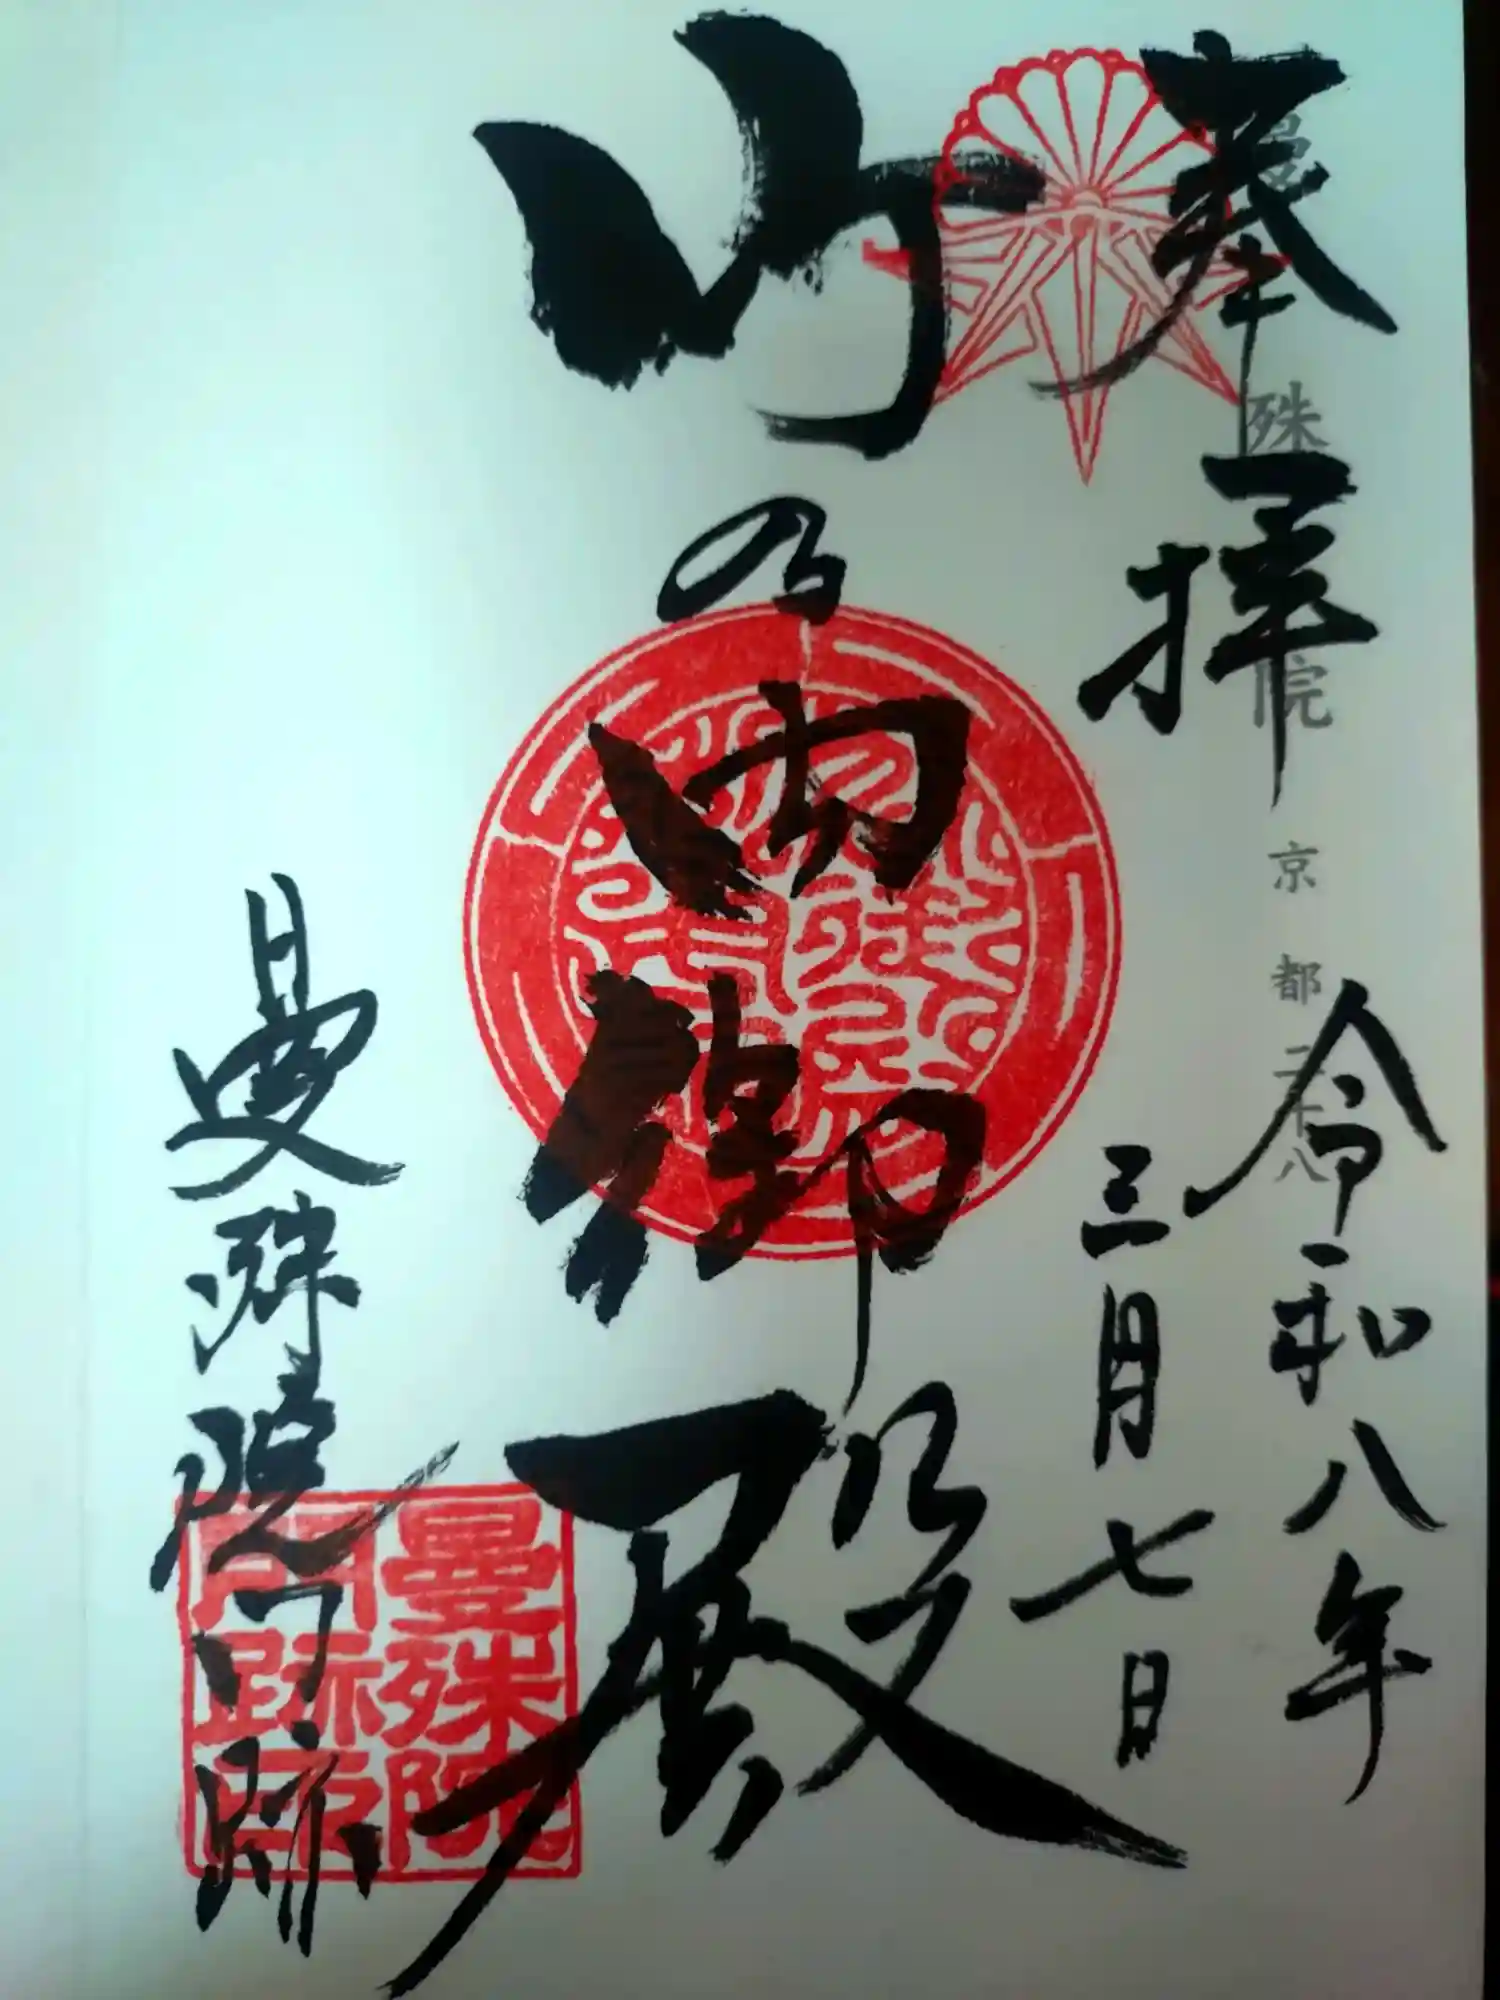 奉拝
曼殊院
京都二十八
令和八年
三月七日
山の内御殿
曼殊院門跡
曼殊院
門跡印